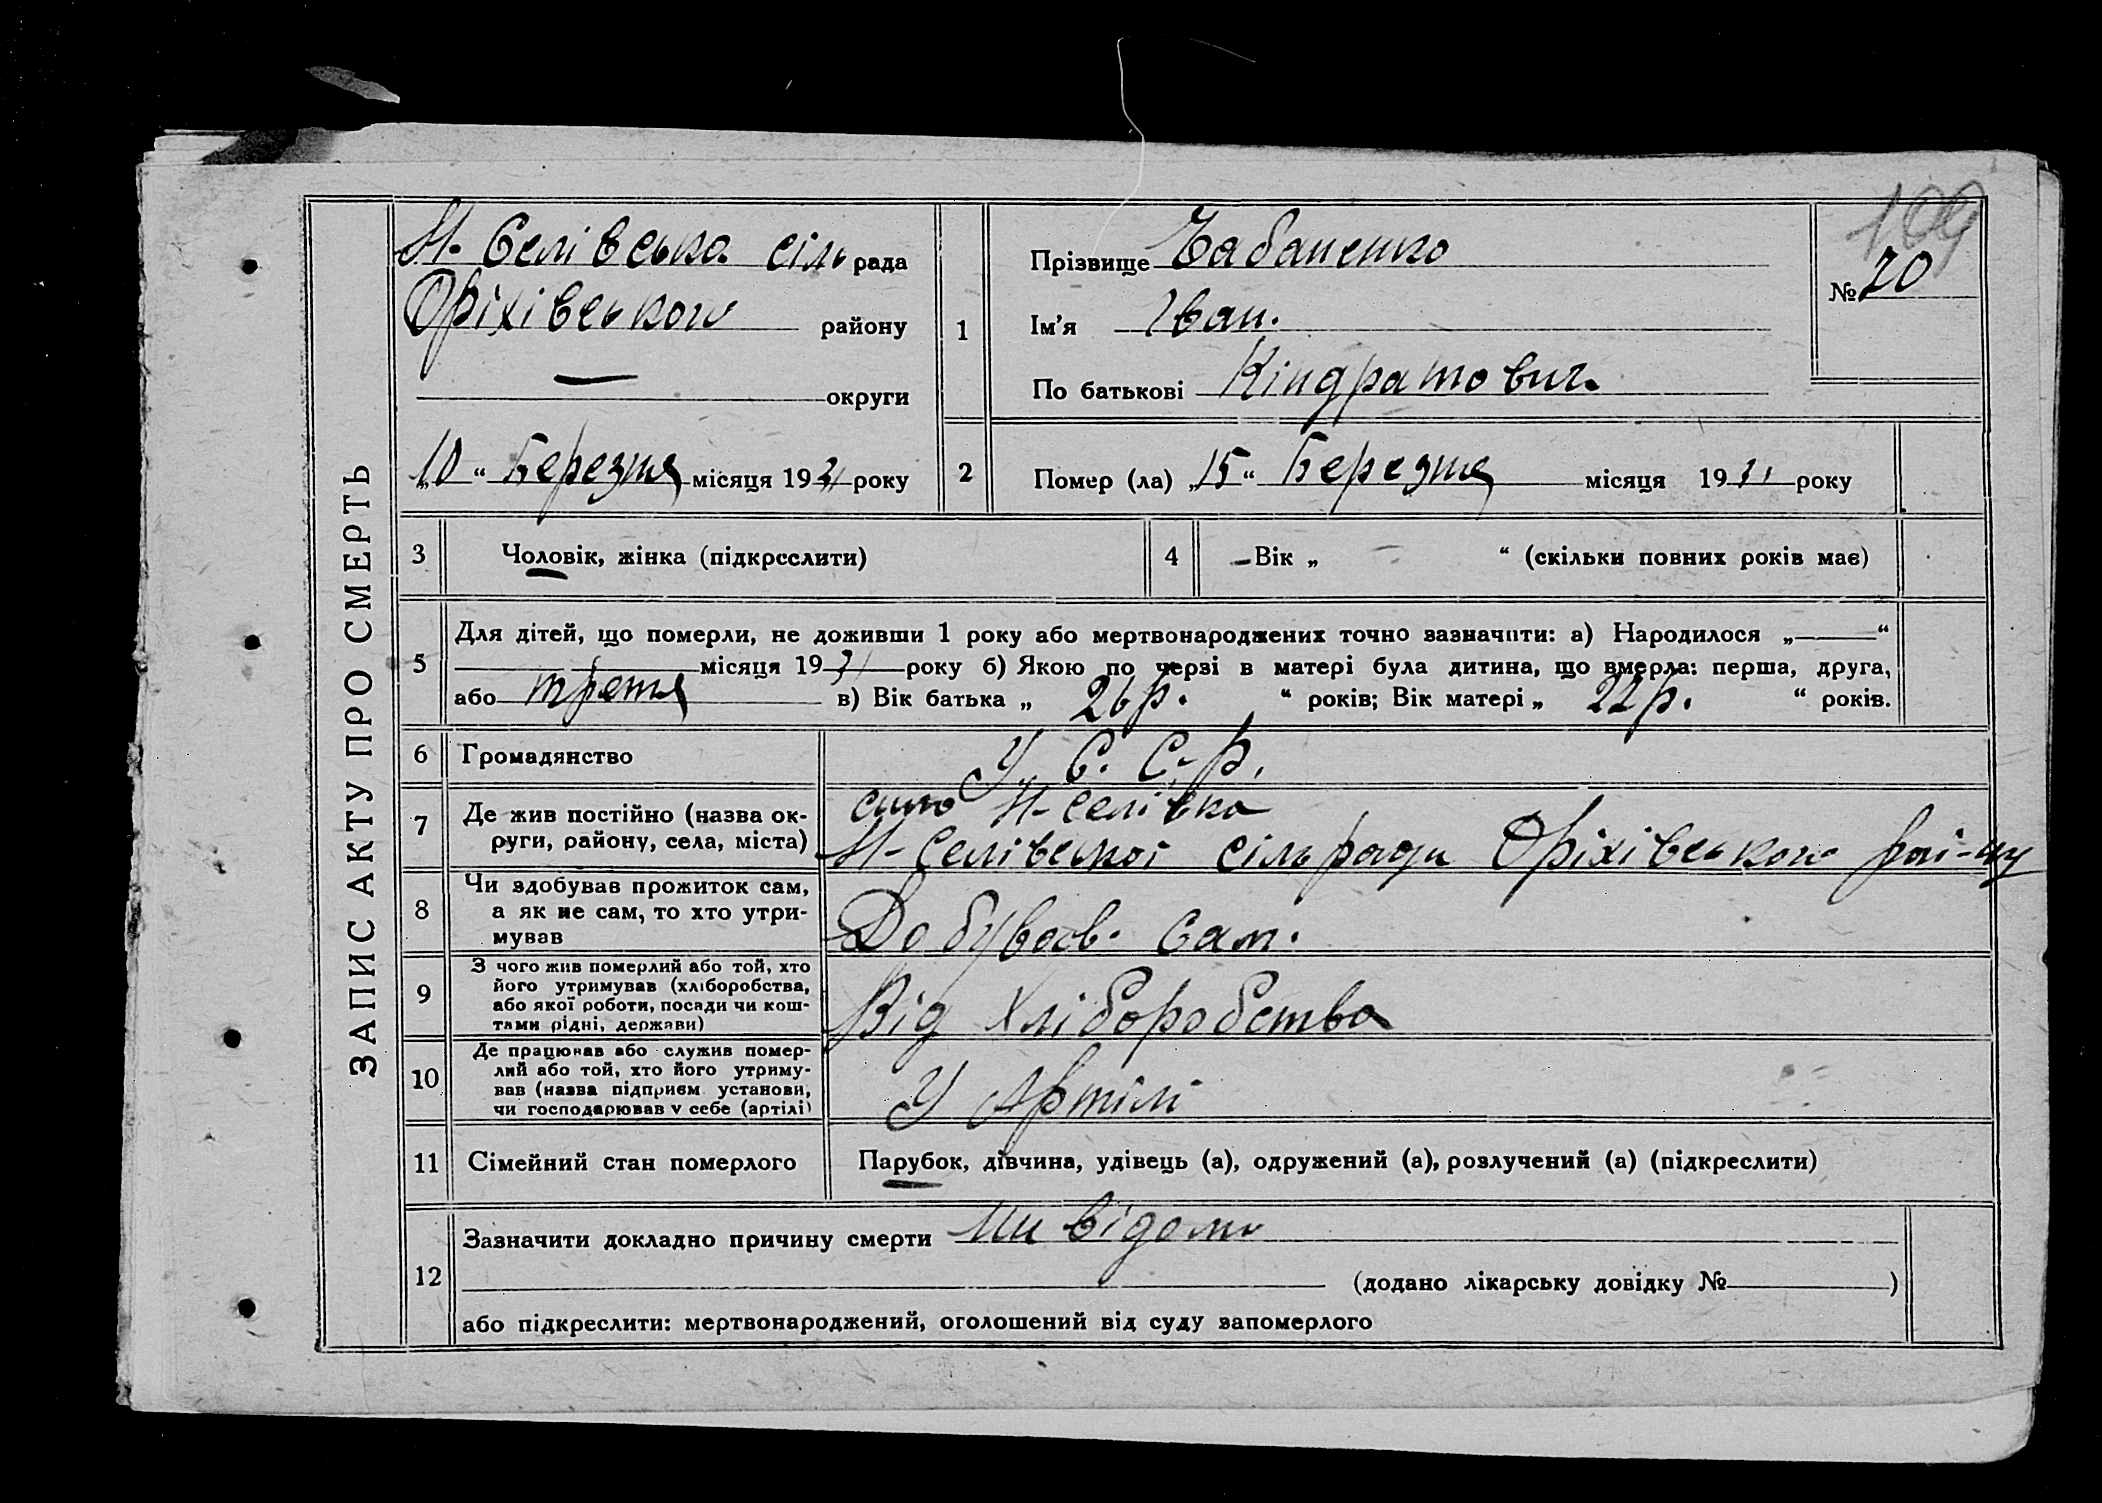 ЗАПИС АКТУ ПРО СМЕРТЬ
Н-Селівська сіль рада
Оріхівського району
округи
„10“ Березня місяця 1931 року
1
Прізвище Чабаненко
Ім'я Іван.
По батькові Кіндратович.
109
№ 20
2
Помер (ла) „15“ Березня місяця 1931 року
3 Чоловік, жінка (підкреслити)
4 Вік „ “ (скільки повних років має)
5
Для дітей, що померли, не доживши 1 року або мертвонароджених точно зазначити: а) Народилося „ “
місяця 1931 року б) Якою по черзі в матері була дитина, що вмерла: перша, друга,
або третя в) Вік батька „ 26 р. “ років; Вік матері „ 22 р. “ років.
6 Громадянство У. С. С. Р.
7 Де жив постійно (назва ок-
руги, району, села, міста)
село Н-Селівка
Н-Селівської сільради Оріхівського рай-ну
8 Чи здобував прожиток сам,
а як не сам, то хто утри-
мував
Добував. Сам.
9 З чого жив померлий або той, хто
його утримував (хліборобства,
або якої роботи, посади чи кош-
тами рідні, держави)
Від Хліборобства
10 Де працював або служив помер-
лий або той, хто його утриму-
вав (назва підприєм. установи,
чи господарював у себе (артілі)
У Артілі
11 Сімейний стан померлого Парубок, дівчина, удівець (а), одружений (а), розлучений (а) (підкреслити)
12
Зазначити докладно причину смерти Ни відомо
(додано лікарську довідку № )
або підкреслити: мертвонароджений, оголошений від суду запомерлого